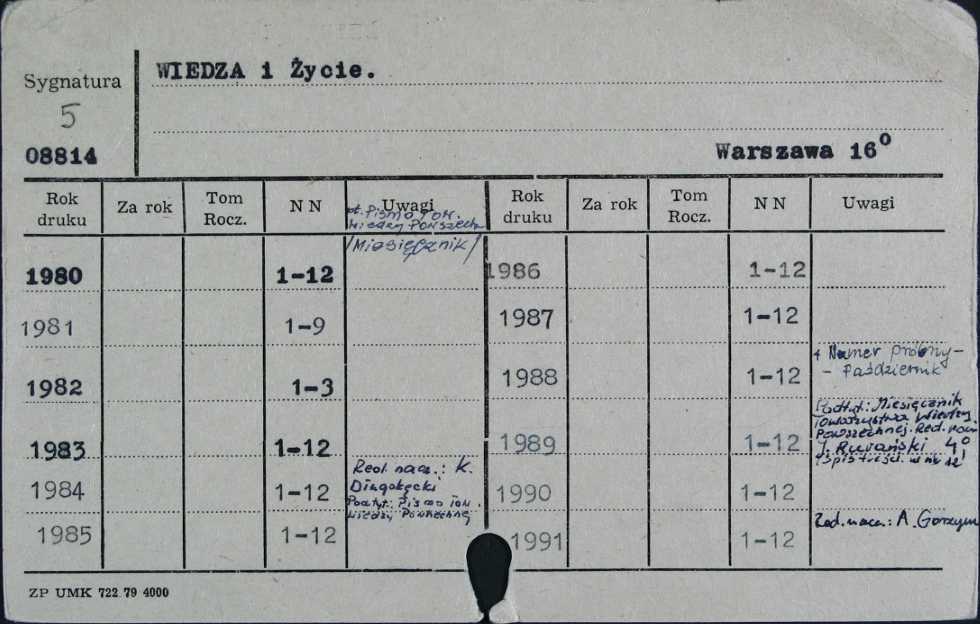 Sygnatura
5
08814
WIEDZA i Życie.
Warszawa 16⁰
Rok druku Za rok Tom Rocz. NN Uwagi Rok druku Za rok Tom Rocz. NN Uwagi
Pismo Tow.
Wiedzy Powszech
/Miesięcznik/
1980 1-12 1986 1-12
1981 1-9 1987 1-12
1982 1-3 1988 1-12 + Numer próbny-
- Październik
1983 1-12 1989 1-12 Podtyt.: Miesięcznik
Towarzystwa Wiedzy
Powszechnej. Red. nacz.
J. Rurański 4⁰
Spis treści. w nr 12
1984 1-12 Red. nacz.: K.
Długołęcki
Podtyt: Pismo Tow.
Wiedzy Powszechnej
1990 1-12
1985 1-12 1991 1-12 Red. nacz.: A. Gorzym
ZP UMK 722 79 4000